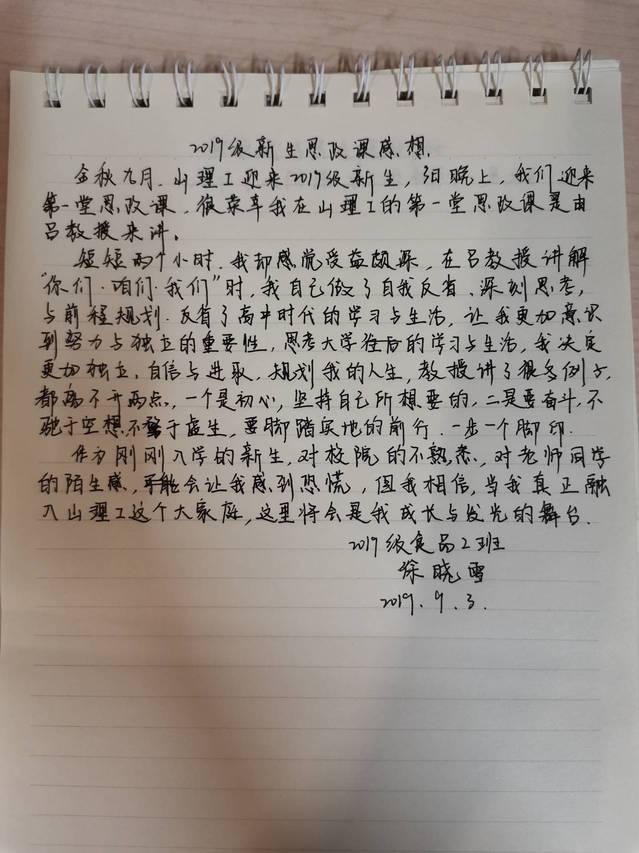 2019级新生思政课感想.
金秋九月.山理工迎来2019级新生,3日晚上,我们迎来
第一堂思政课.很荣幸我在山理工的第一堂思政课是由
吕教授来讲。
短短两个小时.我却感觉受益颇深,在吕教授讲解
“你们·咱们·我们”时,我自己做了自我反省、深刻思考,
与前程规划.反省了高中时代的学习与生活,让我更加意识
到努力与独立的重要性,思考大学往后的学习与生活,我决定
更加独立,自信与进取,规划我的人生,教授讲了很多例子,
都离不开两点,一个是初心,坚持自己所想要的,二是要奋斗,不
驰于空想不骛于虚生,要脚踏实地的前行.一步一个脚印.
作为刚刚入学的新生,对校院的不熟悉,对老师同学
的陌生感,可能会让我感到恐慌,但我相信,当我真正融
入山理工这个大家庭,这里将会是我成长与发光的舞台.
2019级食品2班
徐晓雪
2019.9.3.